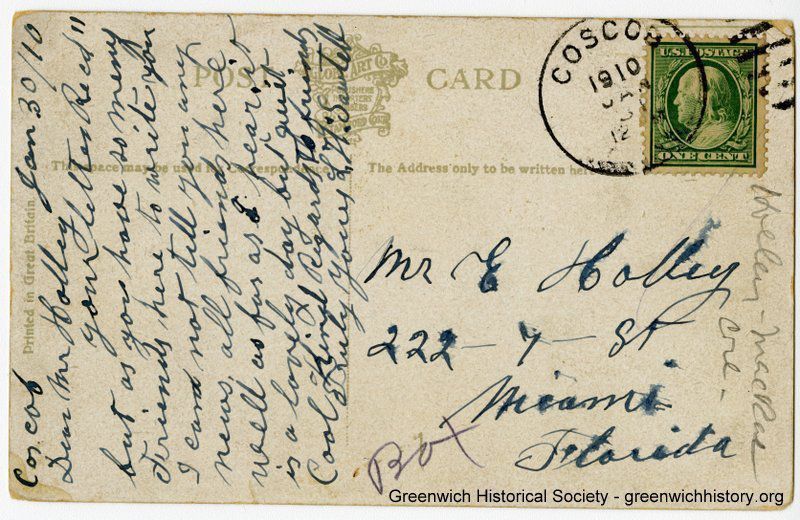 Cos cob Jan 30/10
Dear Mr Holley
your letter Recd"
but as you have so meny
Friends here to write you
I can not tell you any
news, all friends here
well as far as I hear it
is a lovely day but quit
Cool, Kind Regards to friends
Truly yours
POST CARD
This space may be used for Correspondence
The Address only to be written here
Printed in Great Britain.
COSCOB
1910
U.S. POSTAGE
ONE CENT
Mr E Holley
222 - 7 - St
Miami
Florida
Box
Holley - MacRae
Greenwich Historical Society - greenwichhistory.org